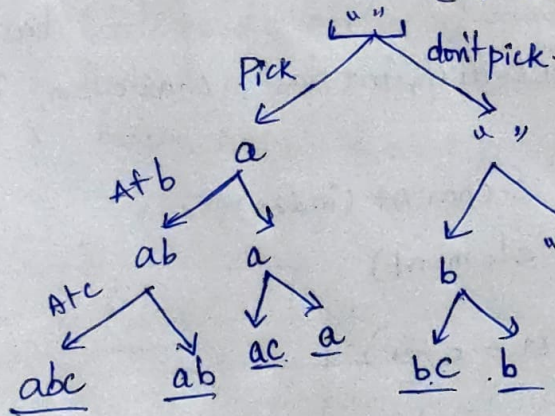 " "
Pick don't pick
a " "
A+b
ab a b
A+c
abc ab ac a bc b